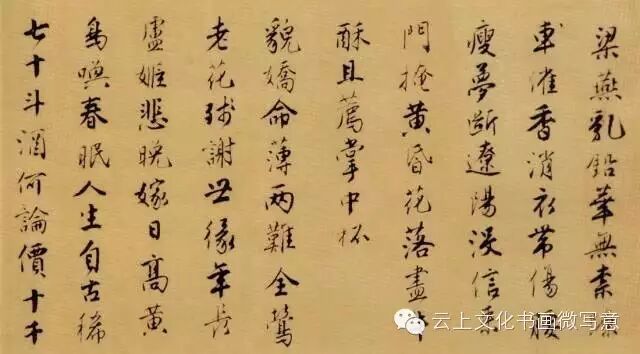 梁燕乳鉛華無柰
催香消衣帶傷腰
瘦夢斷遼陽沒信來
門掩黃昏花落盡牛
酥且薦掌中杯
貌嬌命薄兩難全鶯
老花殘謝世緣年長
盧姬悲晚嫁日高黃
鳥喚春眠人生自古稀
七十斗酒何論價十千
云上文化书画微写意